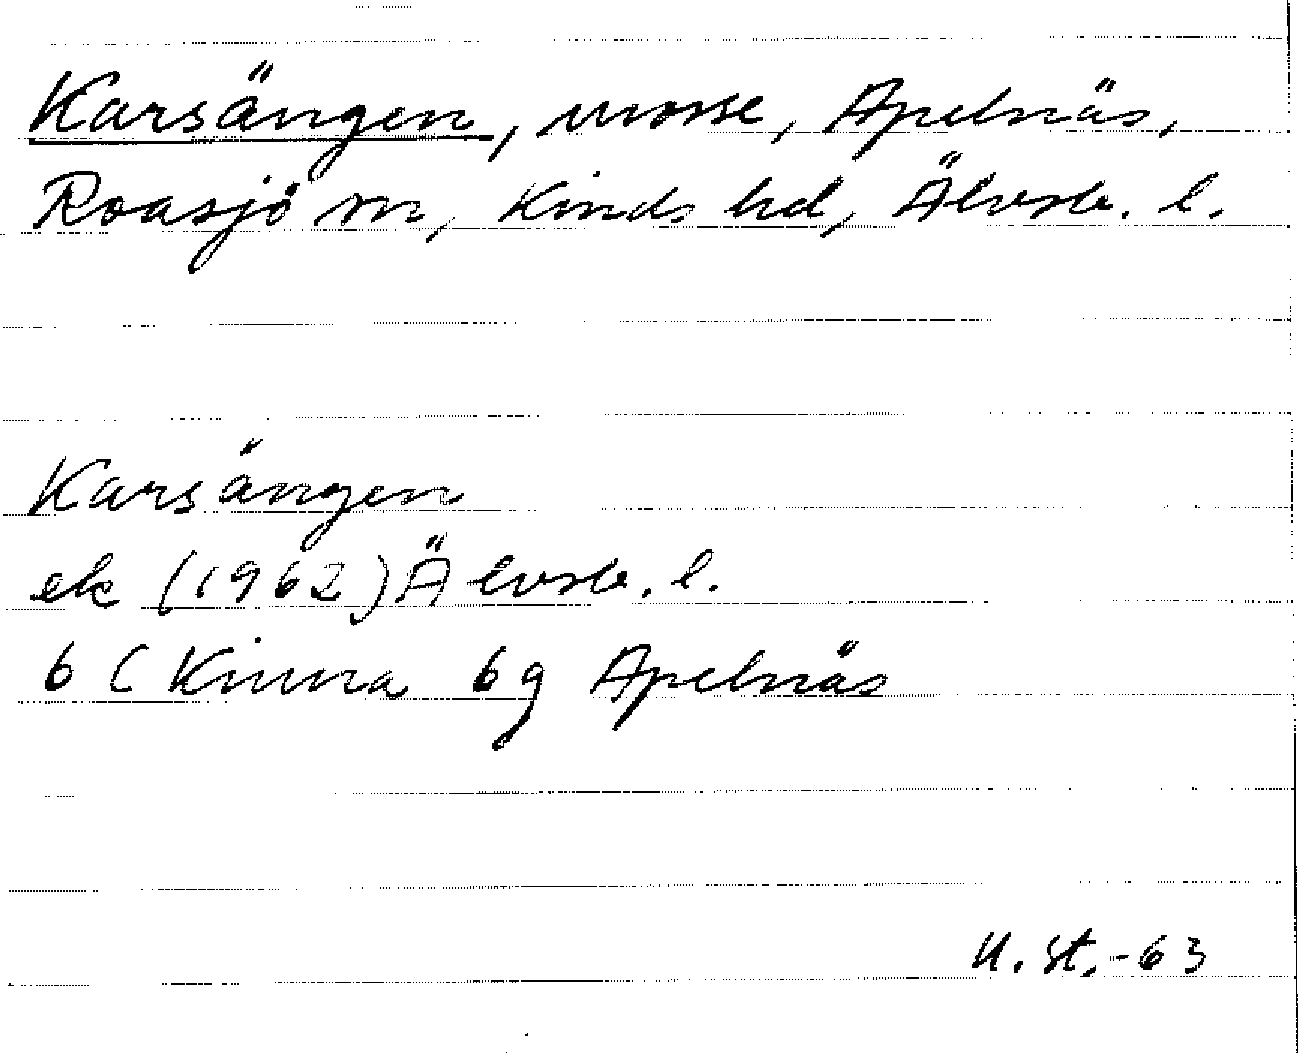 Karsängen, mosse, Apelnäs,
Roasjö sn, Kinds hd, Älvsb. l.
Karsängen
ek (1962) Älvsb. l.
6 C Kinna 6g Apelnäs
U. St. -63